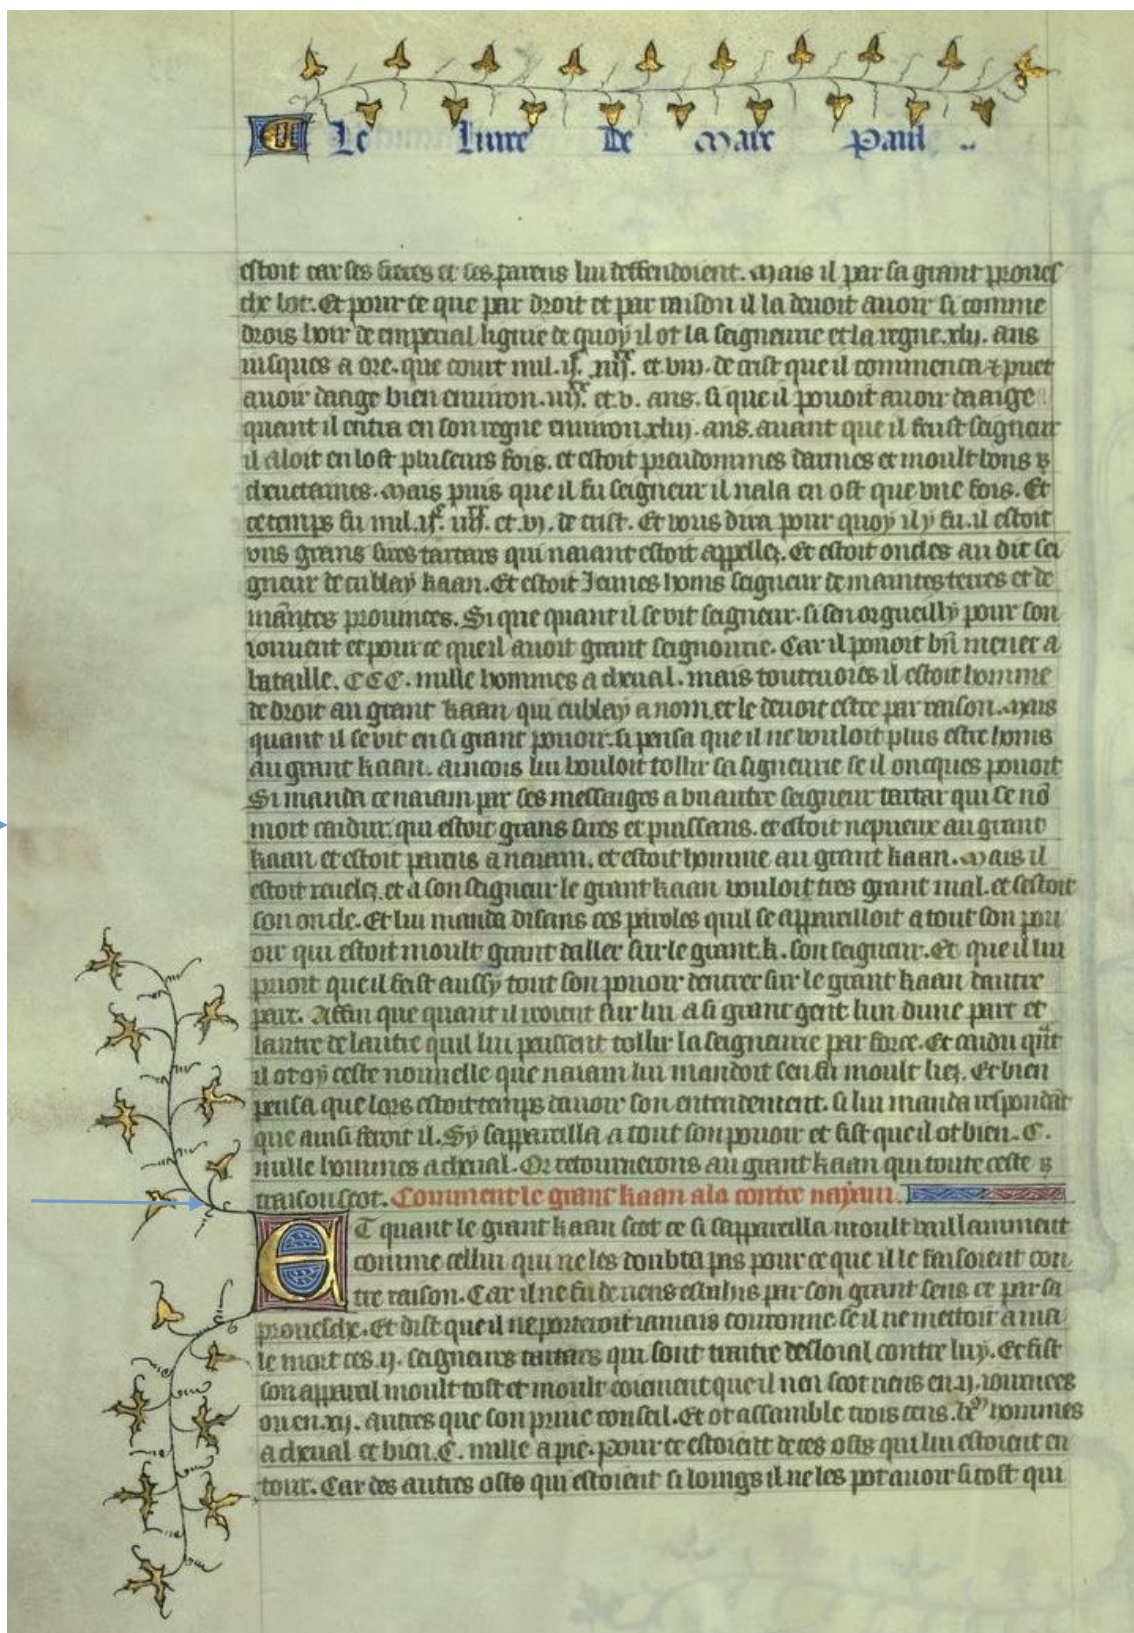 Le liure De Marc Paul
estoit car ses freres et ses parens lui deffendoient. Mais il par sa grant proues
che lot. Et pour ce que par droit et par raison il la deuoit auoir si comme
drois hoir de emperial lignie de quoy il ot la seigneurie et la regne .xlij. ans
iusques a ore. que court mil. ijc. iiijxx. et viij. de crist que il commenca et puet
auoir daage bien enuiron .iiijxx. et .v. ans. si que il pouoit auoir daaige
quant il entra en son regne enuiron .xliij. ans. auant que il feust seigneur
il aloit en lost pluseurs fois. et estoit preudommes darmes et moult bons
cheuetaines. Mais puis que il fu seigneur il nala en ost que vne fois. Et
ce temps fu mil. ijc. iiijxx. et .vj. de crist. Et vous diray pour quoy il y fu. il estoit
vns grans sires tartars qui naiant estoit appellez. Et estoit oncles au dit sei
gneur de cublay kaan. Et estoit Jeunes homs seigneur de maintes terres et de
maintes prouinces. Si que quant il se vit seigneur. si sen orgueilly pour son
iouuent et pour ce que il auoit grant seignourie. Car il pouoit bn̄ mener a
bataille. CCC. mille hommes a cheual. mais touteuoies il estoit homme
de droit au grant kaan qui cublay a nom. et le deuoit estre par raison. Mais
quant il se vit en si grant pouoir. si pensa que il ne vouloit plus estre homs
au grant kaan. aincois lui vouloit tollir sa signeurie se il oncques pouoit
Si manda ce naiam par ses messaiges a vn autre seigneur tartar qui se nō
moit caidur. qui estoit grans sires et puissans. et estoit nepueux au grant
kaan et estoit parens a naiam. et estoit homme au grant kaan. Mais il
estoit reuelez. et a son seigneur le grant kaan vouloit tres grant mal. et sestoit
son oncle. Et lui manda disans ces paroles quil se appareilloit a tout son pou
oir qui estoit moult grant daller sur le grant .k. son seigneur. Et que il lui
prioit que il feist aussy tout son pouoir dentrer sur le grant kaan dautre
part. Affin que quant il iroient sur lui a si grant gent lun dune part et
lautre de lautre quil lui peussent tollir la seigneurie par force. Et caidu qn̄t
il ot oy ceste nouuelle que naiam lui mandoit sen fu moult liez. Et bien
pensa que lors estoit temps dauoir son entendement. si lui manda respondāt
que ainsi feroit il. Sy sappareilla a tout son pouoir et fist que il ot bien .C.
mille hommes a cheual. Or retournerons au grant kaan qui toute ceste
traison scot. Comment le grant kaan ala contre nayam.
ET quant le grant kaan scot ce si sappareilla moult vaillamment
comme cellui qui ne les doubta pas pour ce que il le faisoient con
tre raison. Car il ne fu de riens esbahis par son grant sens et par sa
prouesche. Et dist que il ne porteroit iamais couronne. se il ne mettoit a ma
le mort ces .ij. seigneurs tartars qui sont traitre desloial contre luy. Et fist
son appareil moult tost et moult coiement que il nen scot riens en .x. iournees
ou en .xij. autres que son priue conseil. Et ot assamble trois cens .lxm. hommes
a cheual et bien .C. mille a pie. pour ce estoient de ces osts qui lui estoient en
tour. Car des autres osts qui estoient si loings il ne les pot auoir si tost qui